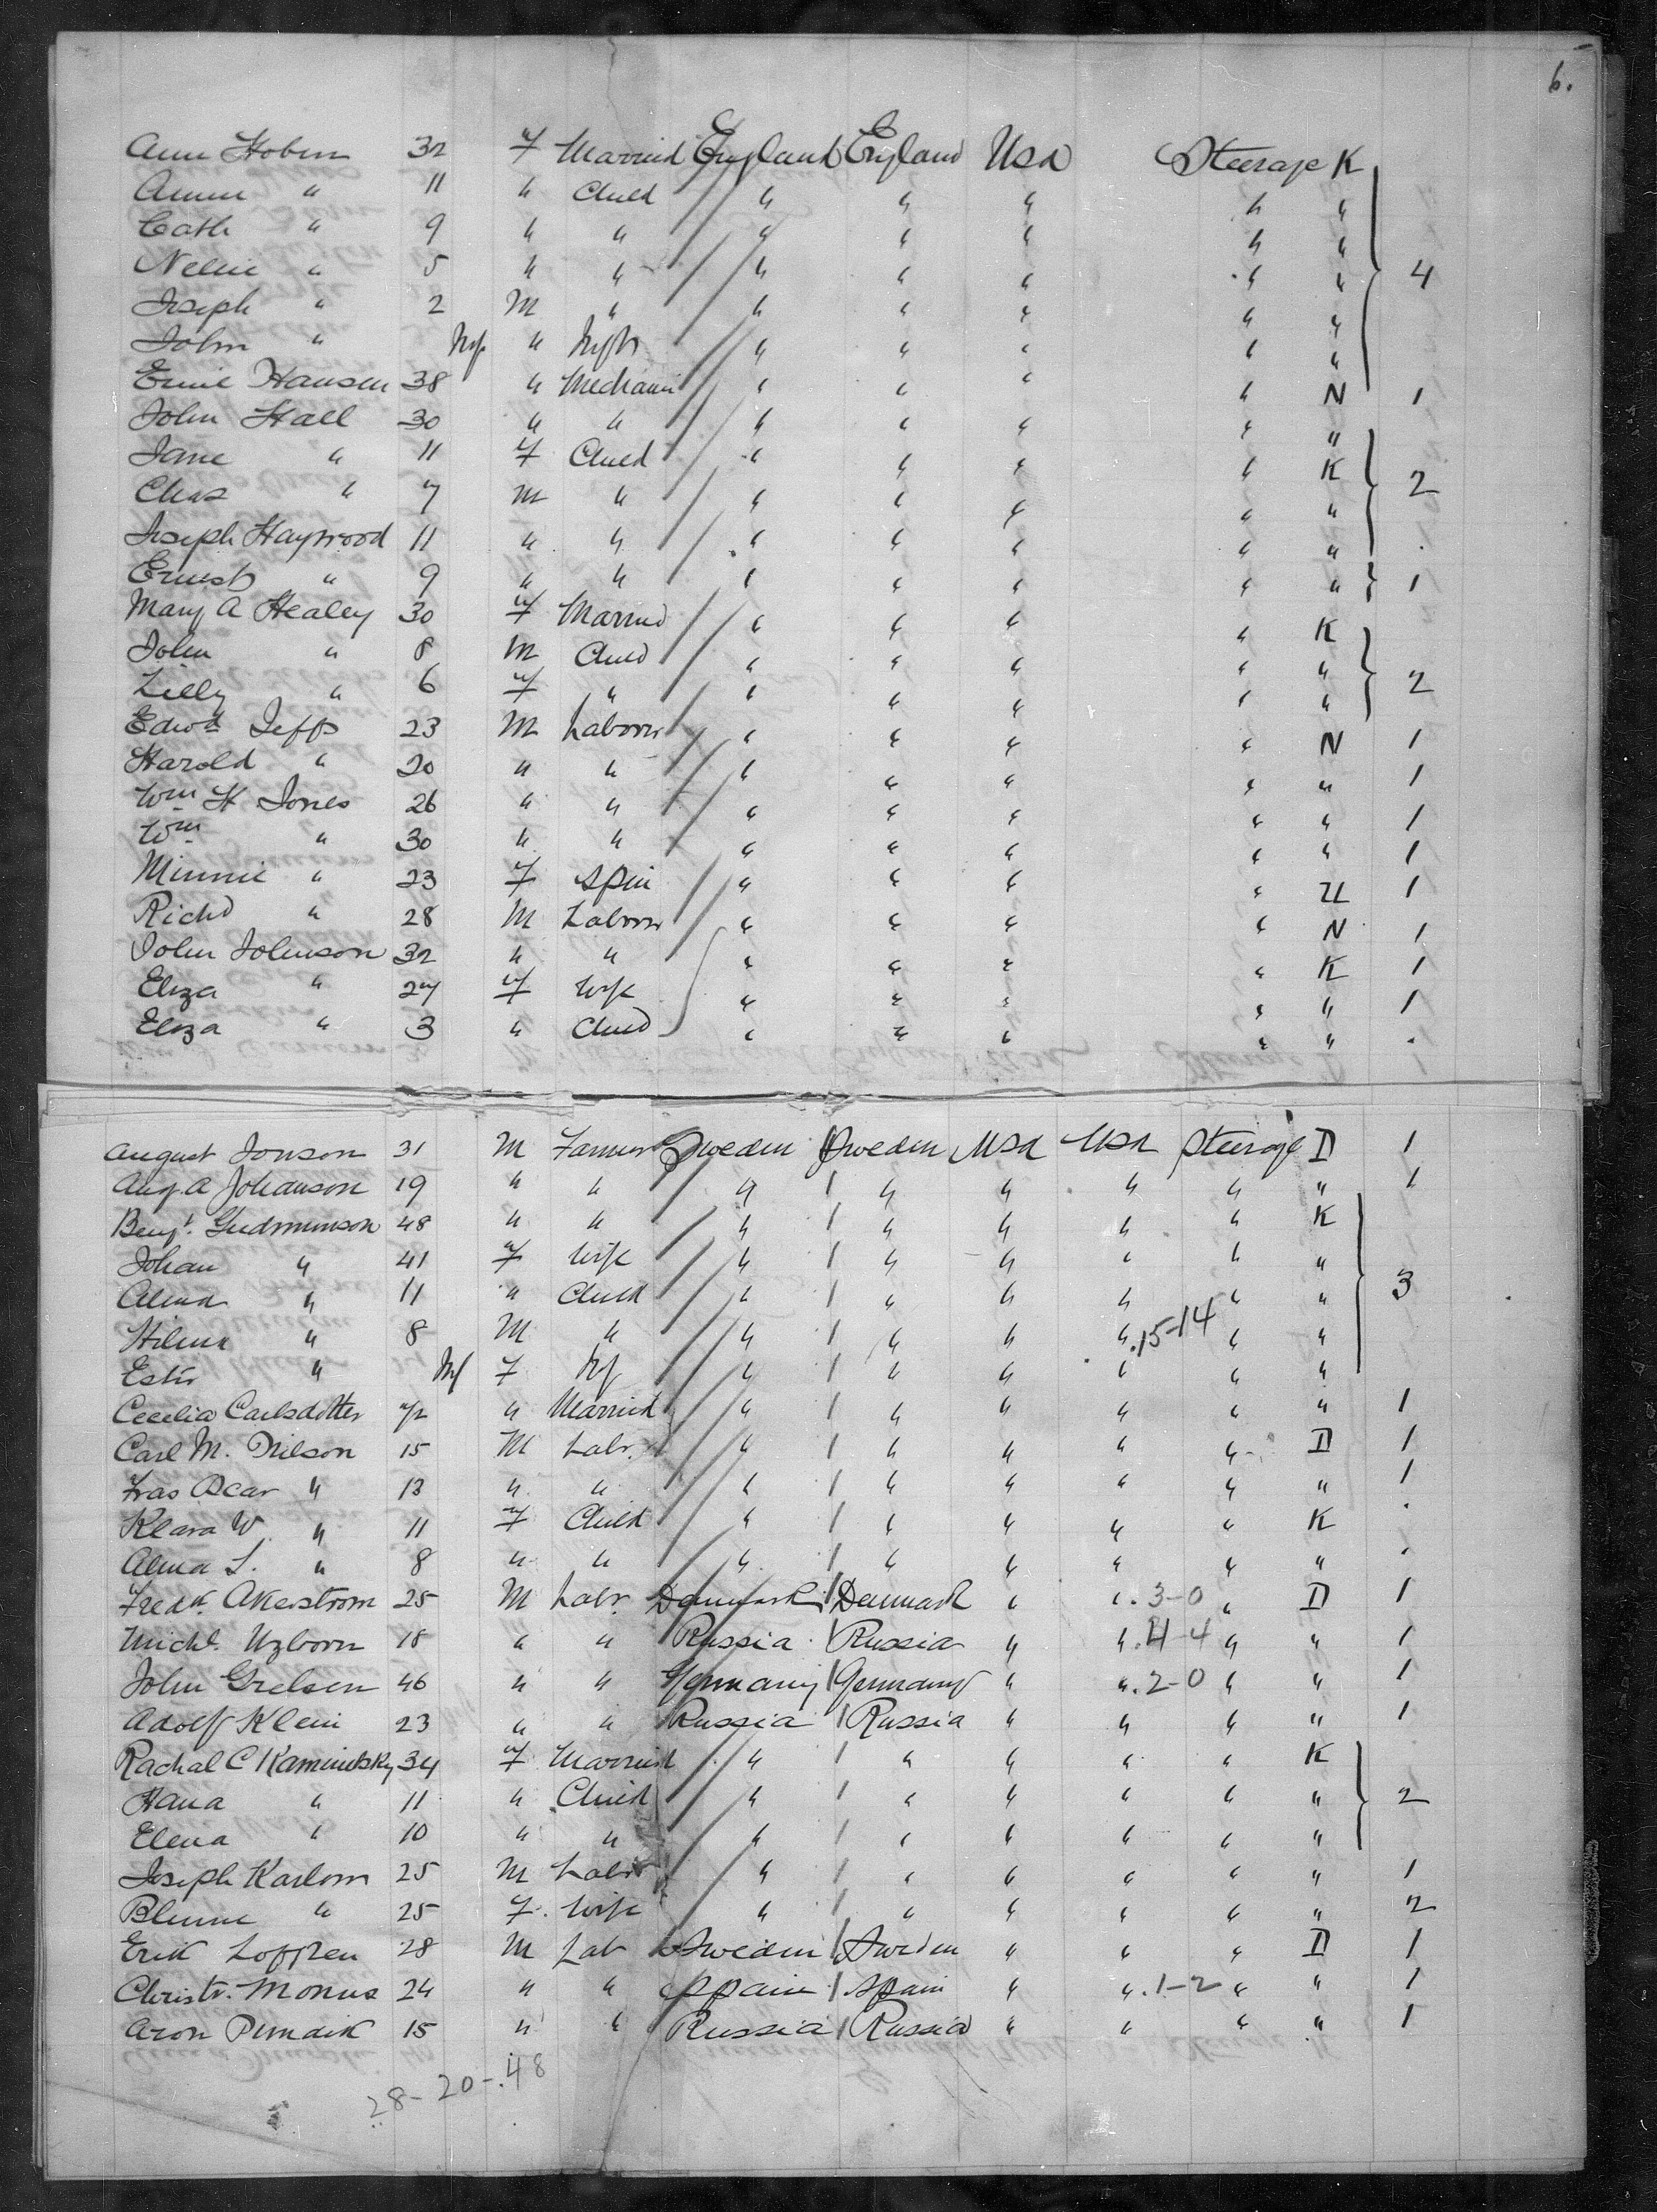 6.
Ann Hobin 32 F Married England England USA Steerage K
Annie " 11 " Child " " " " "
Cath " 9 " " " " " " "
Nellie " 5 " " " " " " " 4
Joseph " 2 M " " " " " "
John " Inf " Inft " " " " "
Ernie Hansen 38 " Mechanic " " " " N 1
John Hall 30 " " " " " " "
Jane " 11 F Child " " " " K
Chas " 7 M " " " " " " 2
Joseph Haywood 11 " " " " " " "
Ernest " 9 " " " " " " " 1
Mary A Healey 30 F Married " " " " K
John " 8 M Child " " " " "
Lilly " 6 F " " " " " " 2
Edwd Jeffs 23 M Laborer " " " " N 1
Harold " 20 " " " " " " " 1
Wm H Jones 26 " " " " " " " 1
Wm " 30 " " " " " " " 1
Minnie " 23 F Spin " " " " U 1
Richd " 28 M Laborer " " " " N 1
John Johnson 32 " " " " " " K 1
Eliza " 27 F Wife " " " " " 1
Eliza " 3 " Child " " " " "
August Jonson 31 M Farmer Sweden Sweden USA USA Steerage D 1
Aug. A Johanson 19 " " " " " " " " 1
Bengt. Gudmunson 48 " " " " " " " K
Johan " 41 F Wife " " " " " "
Alma " 11 " Child " " " " " " 3
Hilma " 8 M " " " " " 15-14 " "
Ester " Inf F Inf " " " " " "
Cecelia Carlsdotter 72 " Married " " " " " " 1
Carl M. Nilson 15 M Labr. " " " " " D 1
Fras Oscar " 13 " " " " " " " " 1
Klara W. " 11 F Child " " " " " K
Alma L. " 8 " " " " " " " "
Fredk. Akerstrom 25 M Labr. Denmark Denmark " " 3-0 " D 1
Michl. Uzborn 18 " " Russia Russia " " 4-4 " " 1
John Grelsen 46 " " Germany Germany " " 2-0 " " 1
Adolf Klein 23 " " Russia Russia " " " " 1
Rachal C Kaminetsky 34 F Married " " " " " K
Hana " 11 " Child " " " " " " 2
Elena " 10 " " " " " " " "
Joseph Karlom 25 M Labr " " " " " " 1
Blume " 25 F. Wife " " " " " " 2
Erik Loffren 28 M Lab Sweden Sweden " " " D 1
Christr. Monus 24 " " Spain Spain " " 1-2 " " 1
Aron Pundik 15 " " Russia Russia " " " " 1
28-20-48